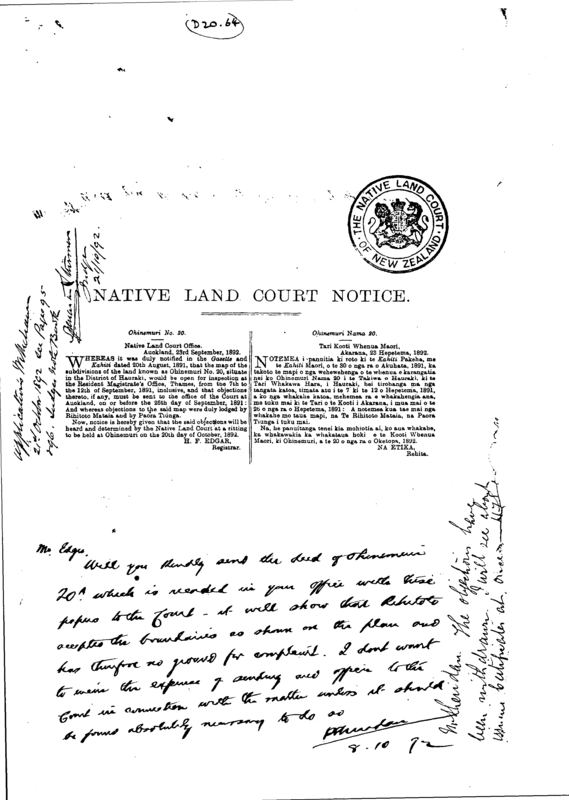 D20.64
THE NATIVE LAND COURT
OF NEW ZEALAND
NATIVE LAND COURT NOTICE.
Ohinemuri No. 20.
Native Land Court Office,
Auckland, 23rd September, 1892.
WHEREAS it was duly notified in the Gazette and
Kahiti dated 20th August, 1891, that the map of the
subdivisions of the land known as Ohinemuri No. 20, situate
in the District of Hauraki, would be open for inspection at
the Resident Magistrate's Office, Thames, from the 7th to
the 12th of September, 1891, inclusive, and that objections
thereto, if any, must be sent to the office of the Court at
Auckland, on or before the 26th day of September, 1891:
And whereas objections to the said map were duly lodged by
Rihitoto Mataia and by Paora Tiunga.
Now, notice is hereby given that the said objections will be
heard and determined by the Native Land Court at a sitting
to be held at Ohinemuri on the 20th day of October, 1892.
H. F. EDGAR,
Registrar.
Ohinemuri Nama 20.
Tari Kooti Whenua Maori,
Akarana, 23 Hepetema, 1892.
NOTEMEA i panuitia ki roto ki te Kahiti Pakeha, me
te Kahiti Maori, o te 20 o nga ra o Akuhata, 1891, ka
takoto te mapi o nga wehewehenga o te whenua e karangatia
nei ko Ohinemuri Nama 20 i te Takiwa o Hauraki, ki te
Tari Whakawa Hara, i Hauraki, hei tirohanga ma nga
tangata katoa, timata atu i te 7 ki te 12 o Hepetema, 1891,
a ko nga whakahe katoa, mehemea ra e whakahengia ana,
me tuku mai ki te Tari o te Kooti i Akarana, i mua mai o te
26 o nga ra o Hepetema, 1891: A notemea kua tae mai nga
whakahe mo taua mapi, na Te Rihitoto Mataia, na Paora
Tiunga i tuku mai.
Na, he panuitanga tenei kia mohiotia ai, ko aua whakahe,
ka whakawakia ka whakataua hoki e te Kooti Whenua
Maori, ki Ohinemuri, a te 20 o nga ra o Oketopa, 1892.
NA ETIKA,
Rehita.
Applications Withdrawn
21st October 1892 see Pages 95
& 96 Judges Note Book
Judge
21/10/92.
Mr Edgar.
Will you kindly send the deed of Ohinemuri
20A which is recorded in your office with these
papers to the Court - it will show that Rihitoto
accepted the boundaries as shown on the plan and
has therefore no ground for complaint. I dont want
to incur the expense of sending an officer to the
Court in connection with the matter unless it should
be found absolutely necessary to do so
8.10.92
Mr Sheridan. The objections have
been withdrawn. I will see about
certificates at once